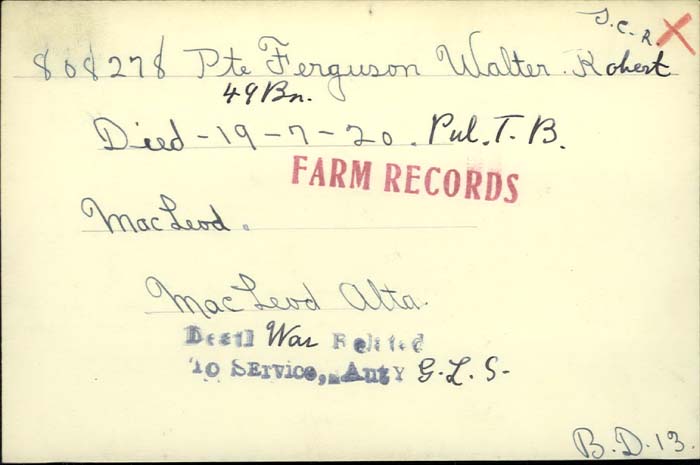 S.C.R. X
808278 Pte Ferguson Walter Robert
49 Bn.
Died - 19 - 7 - 20. Pul. T. B.
FARM RECORDS
MacLeod.
MacLeod Alta.
Death War Related
To Service, Auty G.L.S-
B.D.13.